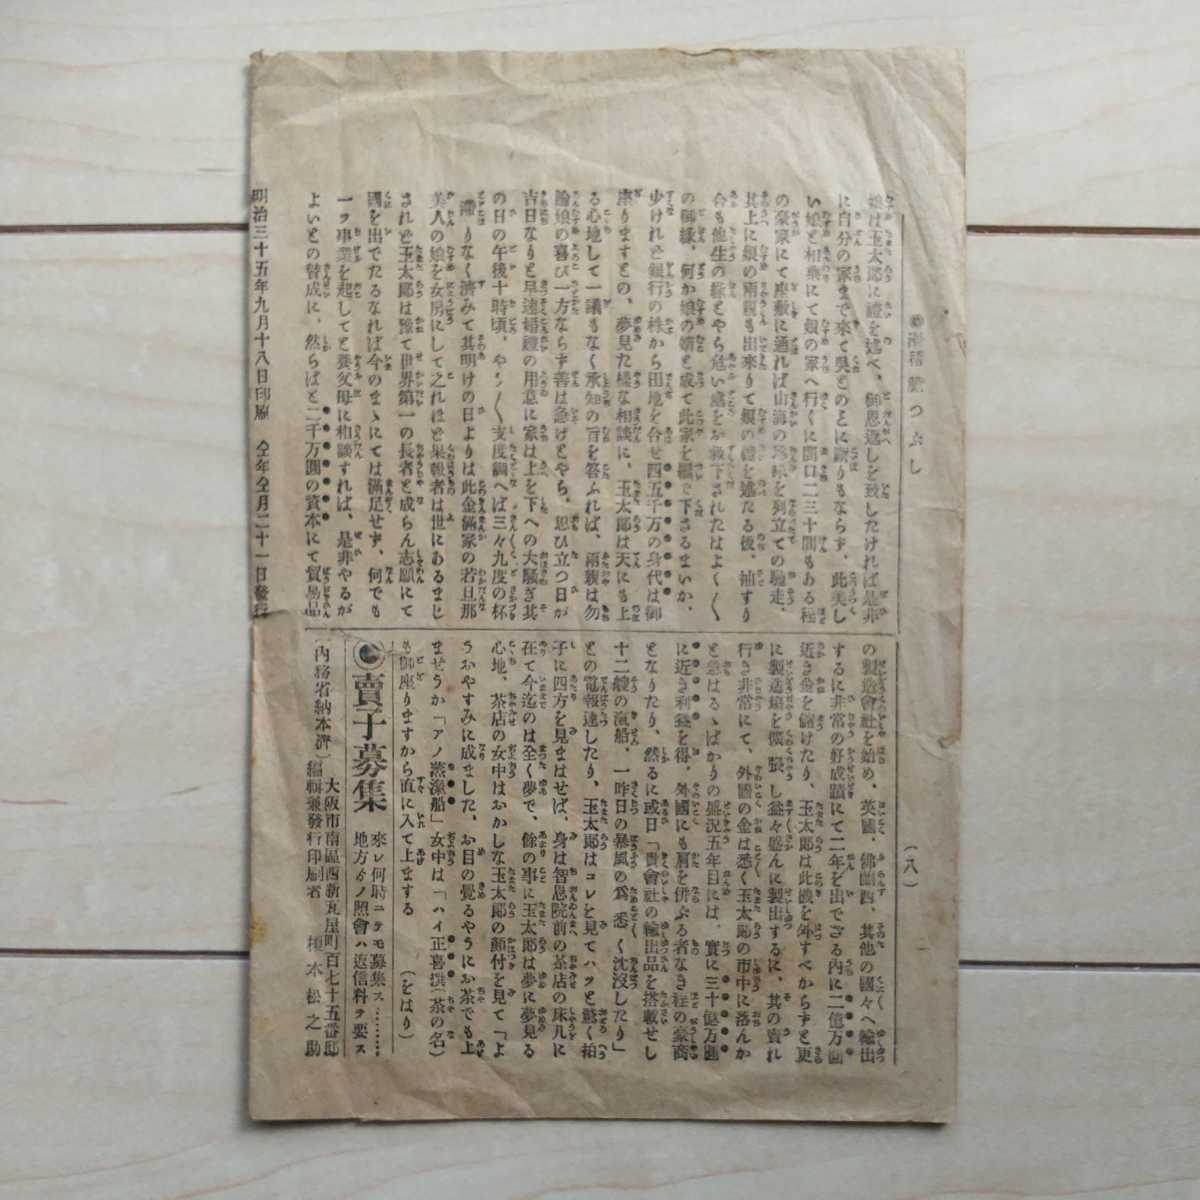 ◎滑稽鹽つぶし
(八)
娘は玉太郎に禮を述べ、御恩返しを致したければ是非
に自分の家まで來て呉とのことに斷りもならず、此美し
い娘と相乘にて娘の家へ行くに間口二三十間もある程
の豪家にて座敷に通れば山海の珍味を列立ての馳走、
其上に娘の兩親も出來りて娘の禮を述たる後、袖すり
合も他生の縁とやら危い處をお救下されたはよく〱
の御縁、何か娘の婿と成て此家を繼で下さるまいか、
少けれど銀行の株から田地を合せ四五千万の身代は御
座りますとの、夢見た樣な相談に、玉太郎は天にも上
る心地して一議もなく承知の旨を答ふれば、兩親は勿
論娘の喜び一方ならず善は急げとやら、思ひ立つ日が
吉日なりと早速婚禮の用意に家は上を下への大騒ぎ其
の日の午後十時頃、やう〱支度調へば三々九度の杯
滯りなく濟みて其明けの日よりは此金滿家の若旦那
美人の娘を女房にして之れほど果報者は世にあるまじ
されど玉太郎は豫て世界第一の長者と成らん志願にて
國を出でたるなれば今のまゝにては滿足せず、何でも
一ツ事業を起してと養父母に相談すれば、是非やるが
よいとの賛成に、然らばと二千万圓の資本にて貿易品
の製造會社を始め、英國、佛蘭西、其他の國々へ輸出
するに非常の好成蹟にて二年を出でざる内に二億万圓
近き金を儲けたり、玉太郎は此機を外すべからずと更
に製造塲を擴張し益々盛んに製出するに、其の賣れ
行き非常にて、外國の金は悉く玉太郎の市中に落んか
と怠はるゝばかりの盛況五年目には、實に三十億万圓
に近き利益を得、外國にも肩を併ぶる者なき程の豪商
となりたり、然るに或日「貴會社の輸出品を搭載せし
十二艘の滊船、一昨日の暴風の爲悉く沈沒したり」
との電報達したり、玉太郎はコレを見てハツと驚く拍
子に四方を見まはせば、身は智恩院前の茶店の床几に
在て今迄のは全く夢で、餘の事に玉太郎は夢に夢見る
心地、茶店の女中はおかしな玉太郎の顏付を見て「よ
うおやすみに成ました、お目の覺るやうにお茶でも上
ませうか「アノ蒸滊船」女中は「ハイ正喜撰(茶の名)
も御座りますから直に入て上まする　(をはり)
◎賣子募集
來レ何時ニテモ募集ス………
地方ゟノ照會ハ返信料ヲ要ス
大阪市南區西新瓦屋町百七十五番邸
(内務省納本濟)編輯兼發行印刷者　榎本松之助
明治三十五年九月十八日印刷　仝年仝月二十一日發行